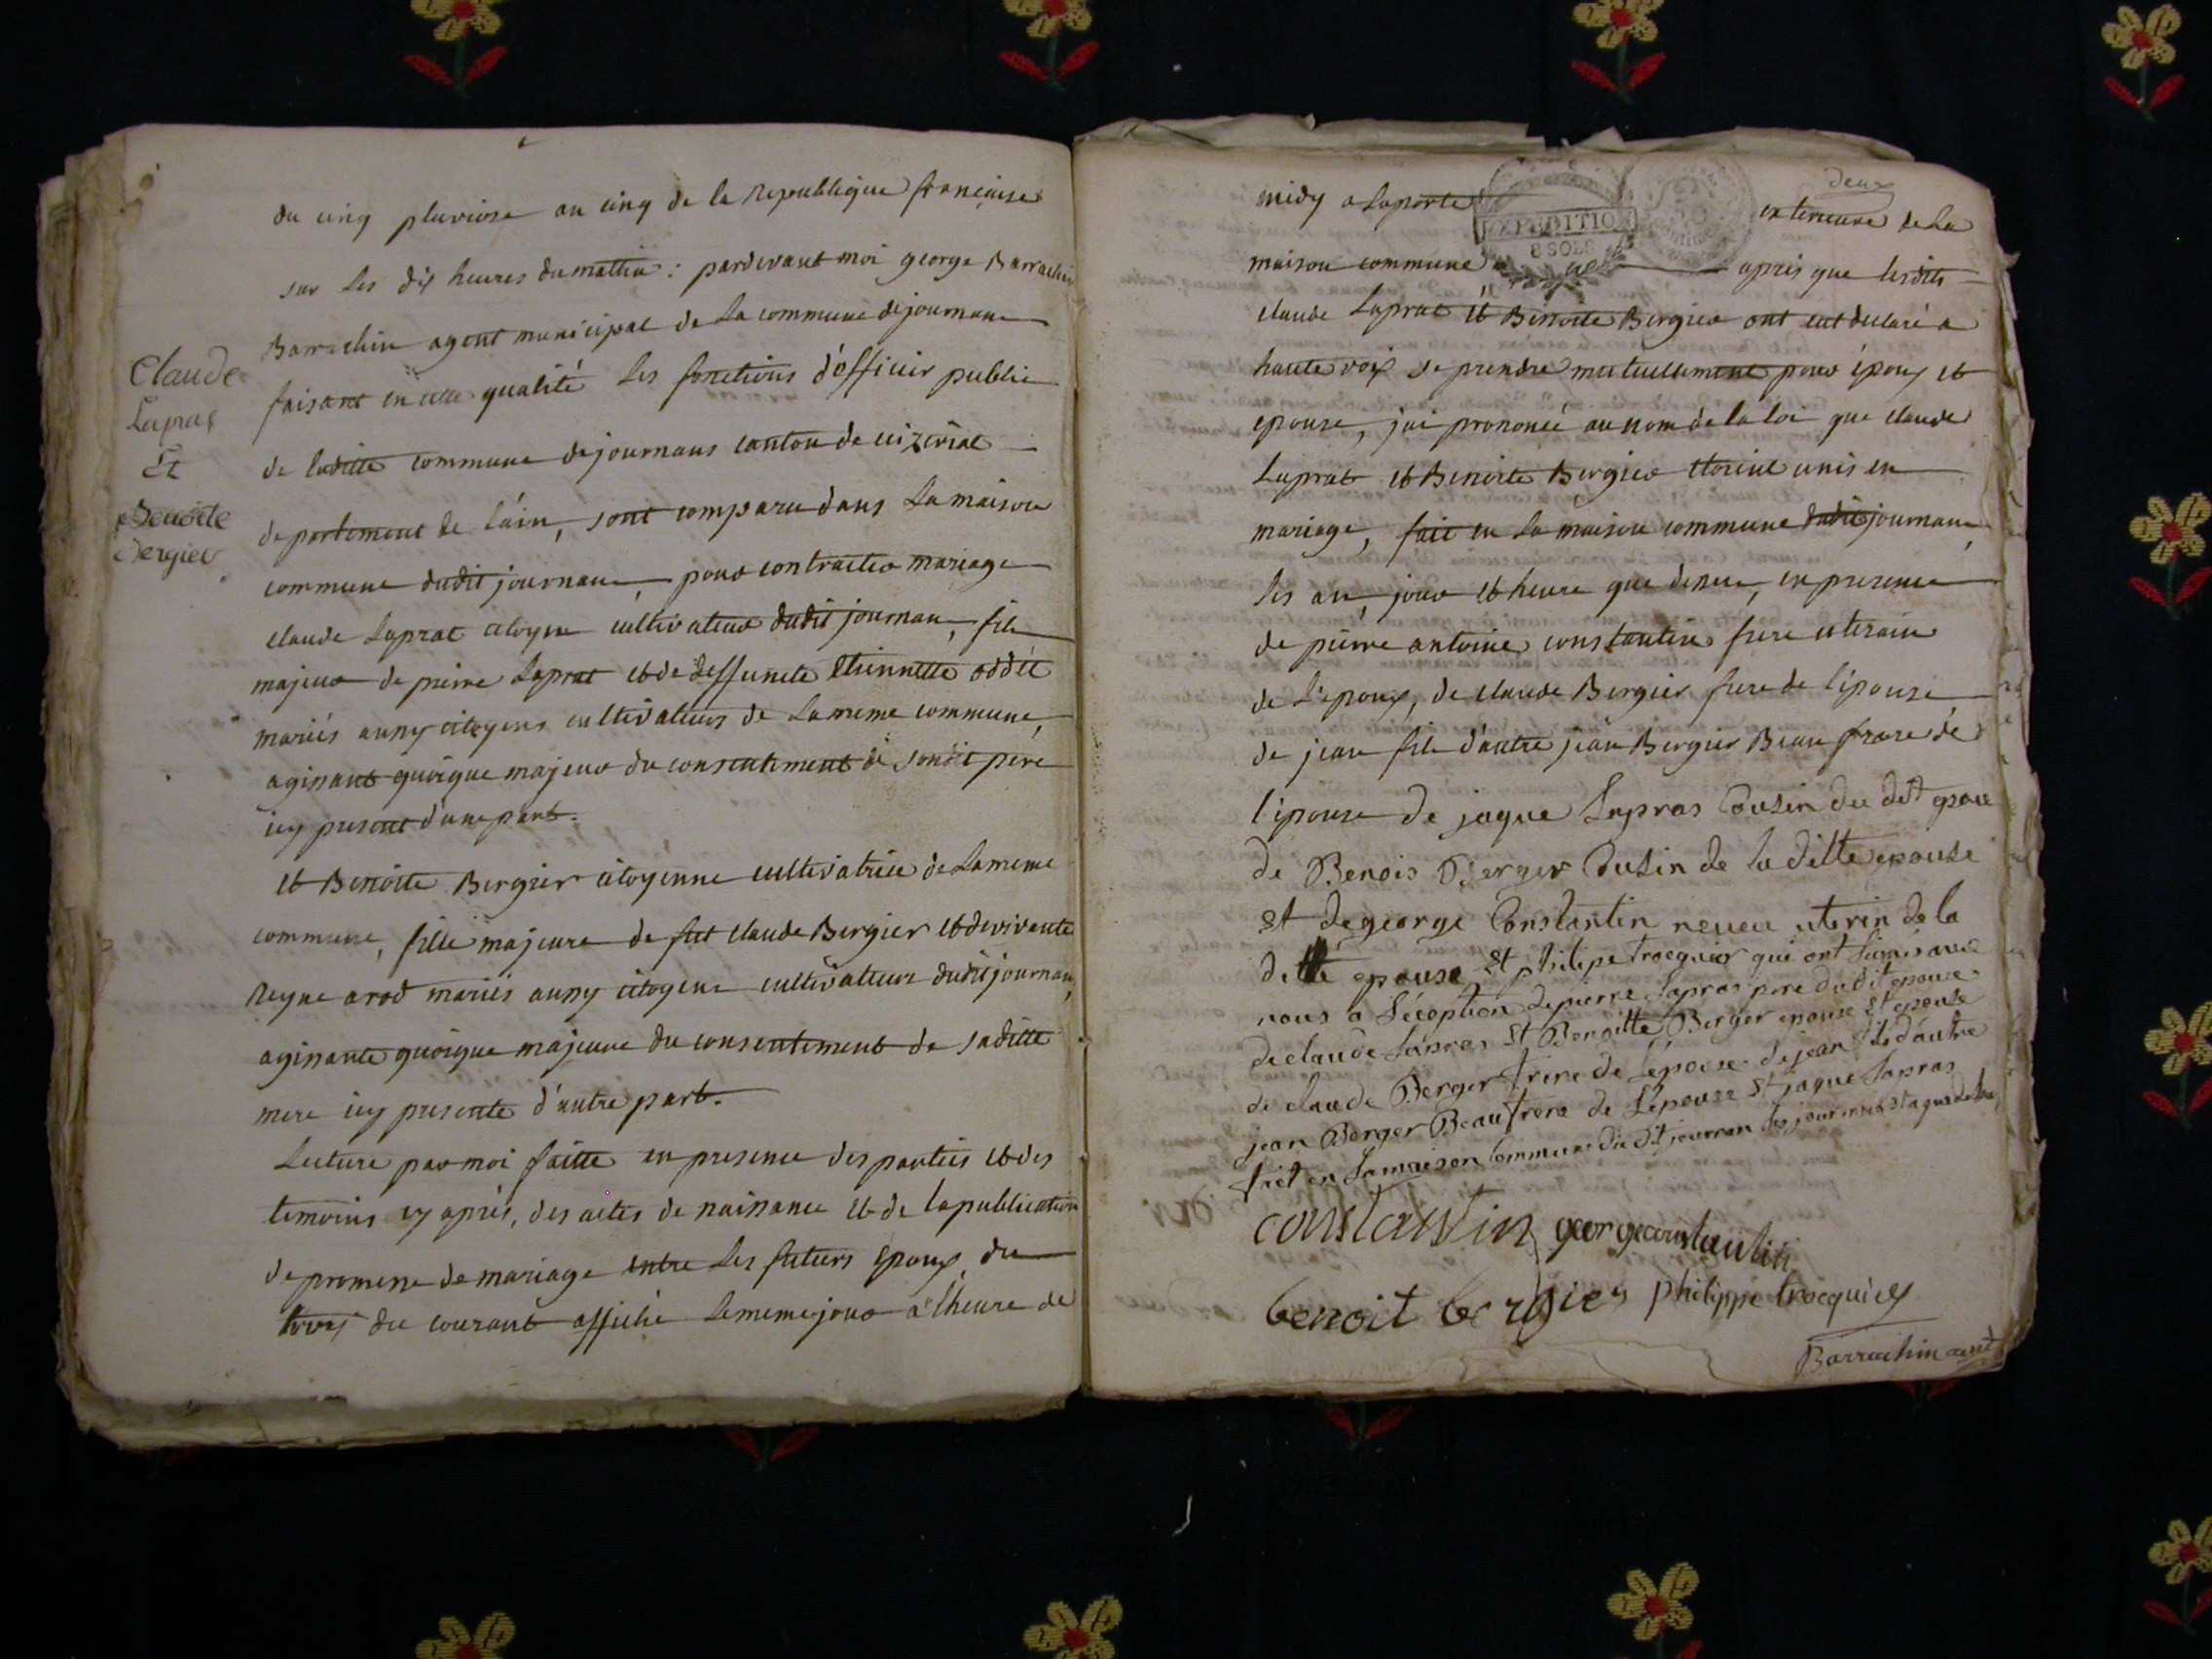 Claude
Laprat
Et
Benoite
Bergier
du cinq pluviose an cinq de la republique françaises
sur les dix heures du mattin : pardevant moi george Barrachin
Barrachin agent municipal de la commune de journanc
faisant en cette qualité les fonctions d'officier public
de laditte commune de journans canton de ceizeriat
departement de l'ain, sont comparu dans la maison
commune dudit journanc, pour contracter mariage
claude Laprat citoyen cultivateur dudit journanc, fils
majeur de pierre Laprat et de deffuncte Etiennette oddet
mariés aussy citoyens cultivateurs de la meme commune,
agissant quoique majeur du consentement de sondit pere
icy present d'une part.
et Benoite Bergier citoyenne cultivatrice de la meme
commune, fille majeure de fut claude Bergier et de vivante
Reyne arod mariés aussy citoyens cultivateurs dudit journanc,
agissante quoique majeure du consentement de saditte
mere icy presente d'autre part.
Lecture par moi faitte en presence des parties et des
temoins cy après, des actes de naissance et de la publication
de promesse de mariage entre les futurs epoux, du
trois du courant affiché le meme jour a l'heure de
deux
midy a la porte exterieure de la
EXPEDITION
8 SOLS
maison commune après que lesdits
claude Laprat et Benoite Bergier ont eut declaré a
haute voix se prendre mutuellement pour époux et
epouse, jai prononcé au nom de la loi que claude
Laprat et Benoite Bergier etoient unis en
mariage, fait en la maison commune dudit journanc,
les an, jour et heure que dessus, en presence
de pierre antoine constantin frere uterain
de l'epoux, de claude Bergier frere de l'épouse,
de jean fils d'autre jean Bergier Beau frere de
l'épouse de jaque Lapras Cousin du dit epoux
de Benois Berger Cousin de la ditte epouse
et de george Constantin neveu uterin de la
ditte epouse, et philipe trocquier qui ont signés avec
nous a l'éception de pierre Lapras pere du dit epoux
de claude Lapras et Benoitte Berger epouse et epouse
de claude Berger frere de l'épouse de jean fils d'autre
jean Berger Beaufrere de l'épouse et jaque Lapras
fait en la maison commune du dit journan les jour
constantin george constantin
benoit bergier philippe trocquier
Barrachin agent